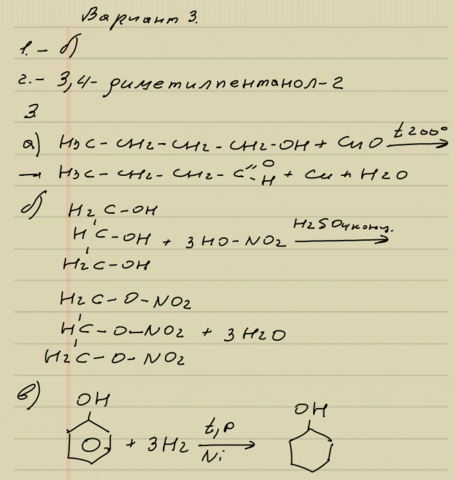 Вариант 3.
1. - б)
2. - 3,4-диметилпентанол-2
3
а) H3C-CH2-CH2-CH2-OH + CuO t200°
→ H3C-CH2-CH2-C=O-H + Cu + H2O
б) H2C-OH
HC-OH + 3HO-NO2 H2SO4конц.
H2C-OH
H2C-O-NO2
HC-O-NO2 + 3H2O
H2C-O-NO2
в) OH OH
+ 3H2 t,p Ni